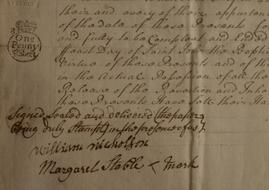 One
Penny
their and every of their appurtenances
of the date of these Presents for
and fully to be Compleat and Ended
Feast Day of Saint John the Baptist
Virtue of these Presents and of the
in the Actual Possession of all the
Release of the Reversion and Inher
these Presents Have Sett their Han
Signed Sealed and delivered the paper
being duly Stampt in the presence of us
William Nicholson
Margaret Stable x mark